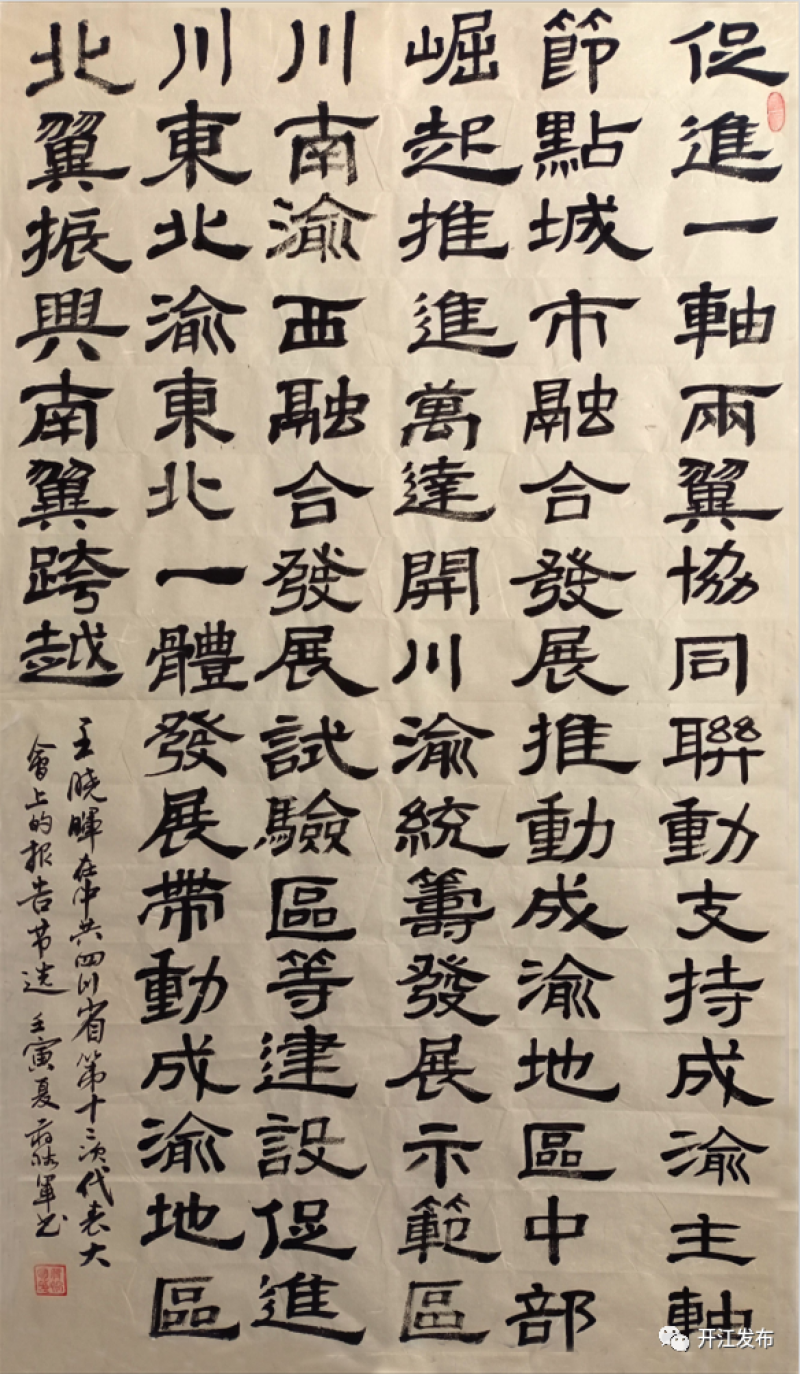 促進一軸兩翼協同聯動支持成渝主軸
節點城市融合發展推動成渝地區中部
崛起推進萬達開川渝統籌發展示範區
川南渝西融合發展試驗區等建設促進
川東北渝東北一體發展帶動成渝地區
北翼振興南翼跨越
王晓暉在中共四川省第十二次代表大
會上的报告节选 壬寅夏 軍书
开江发布